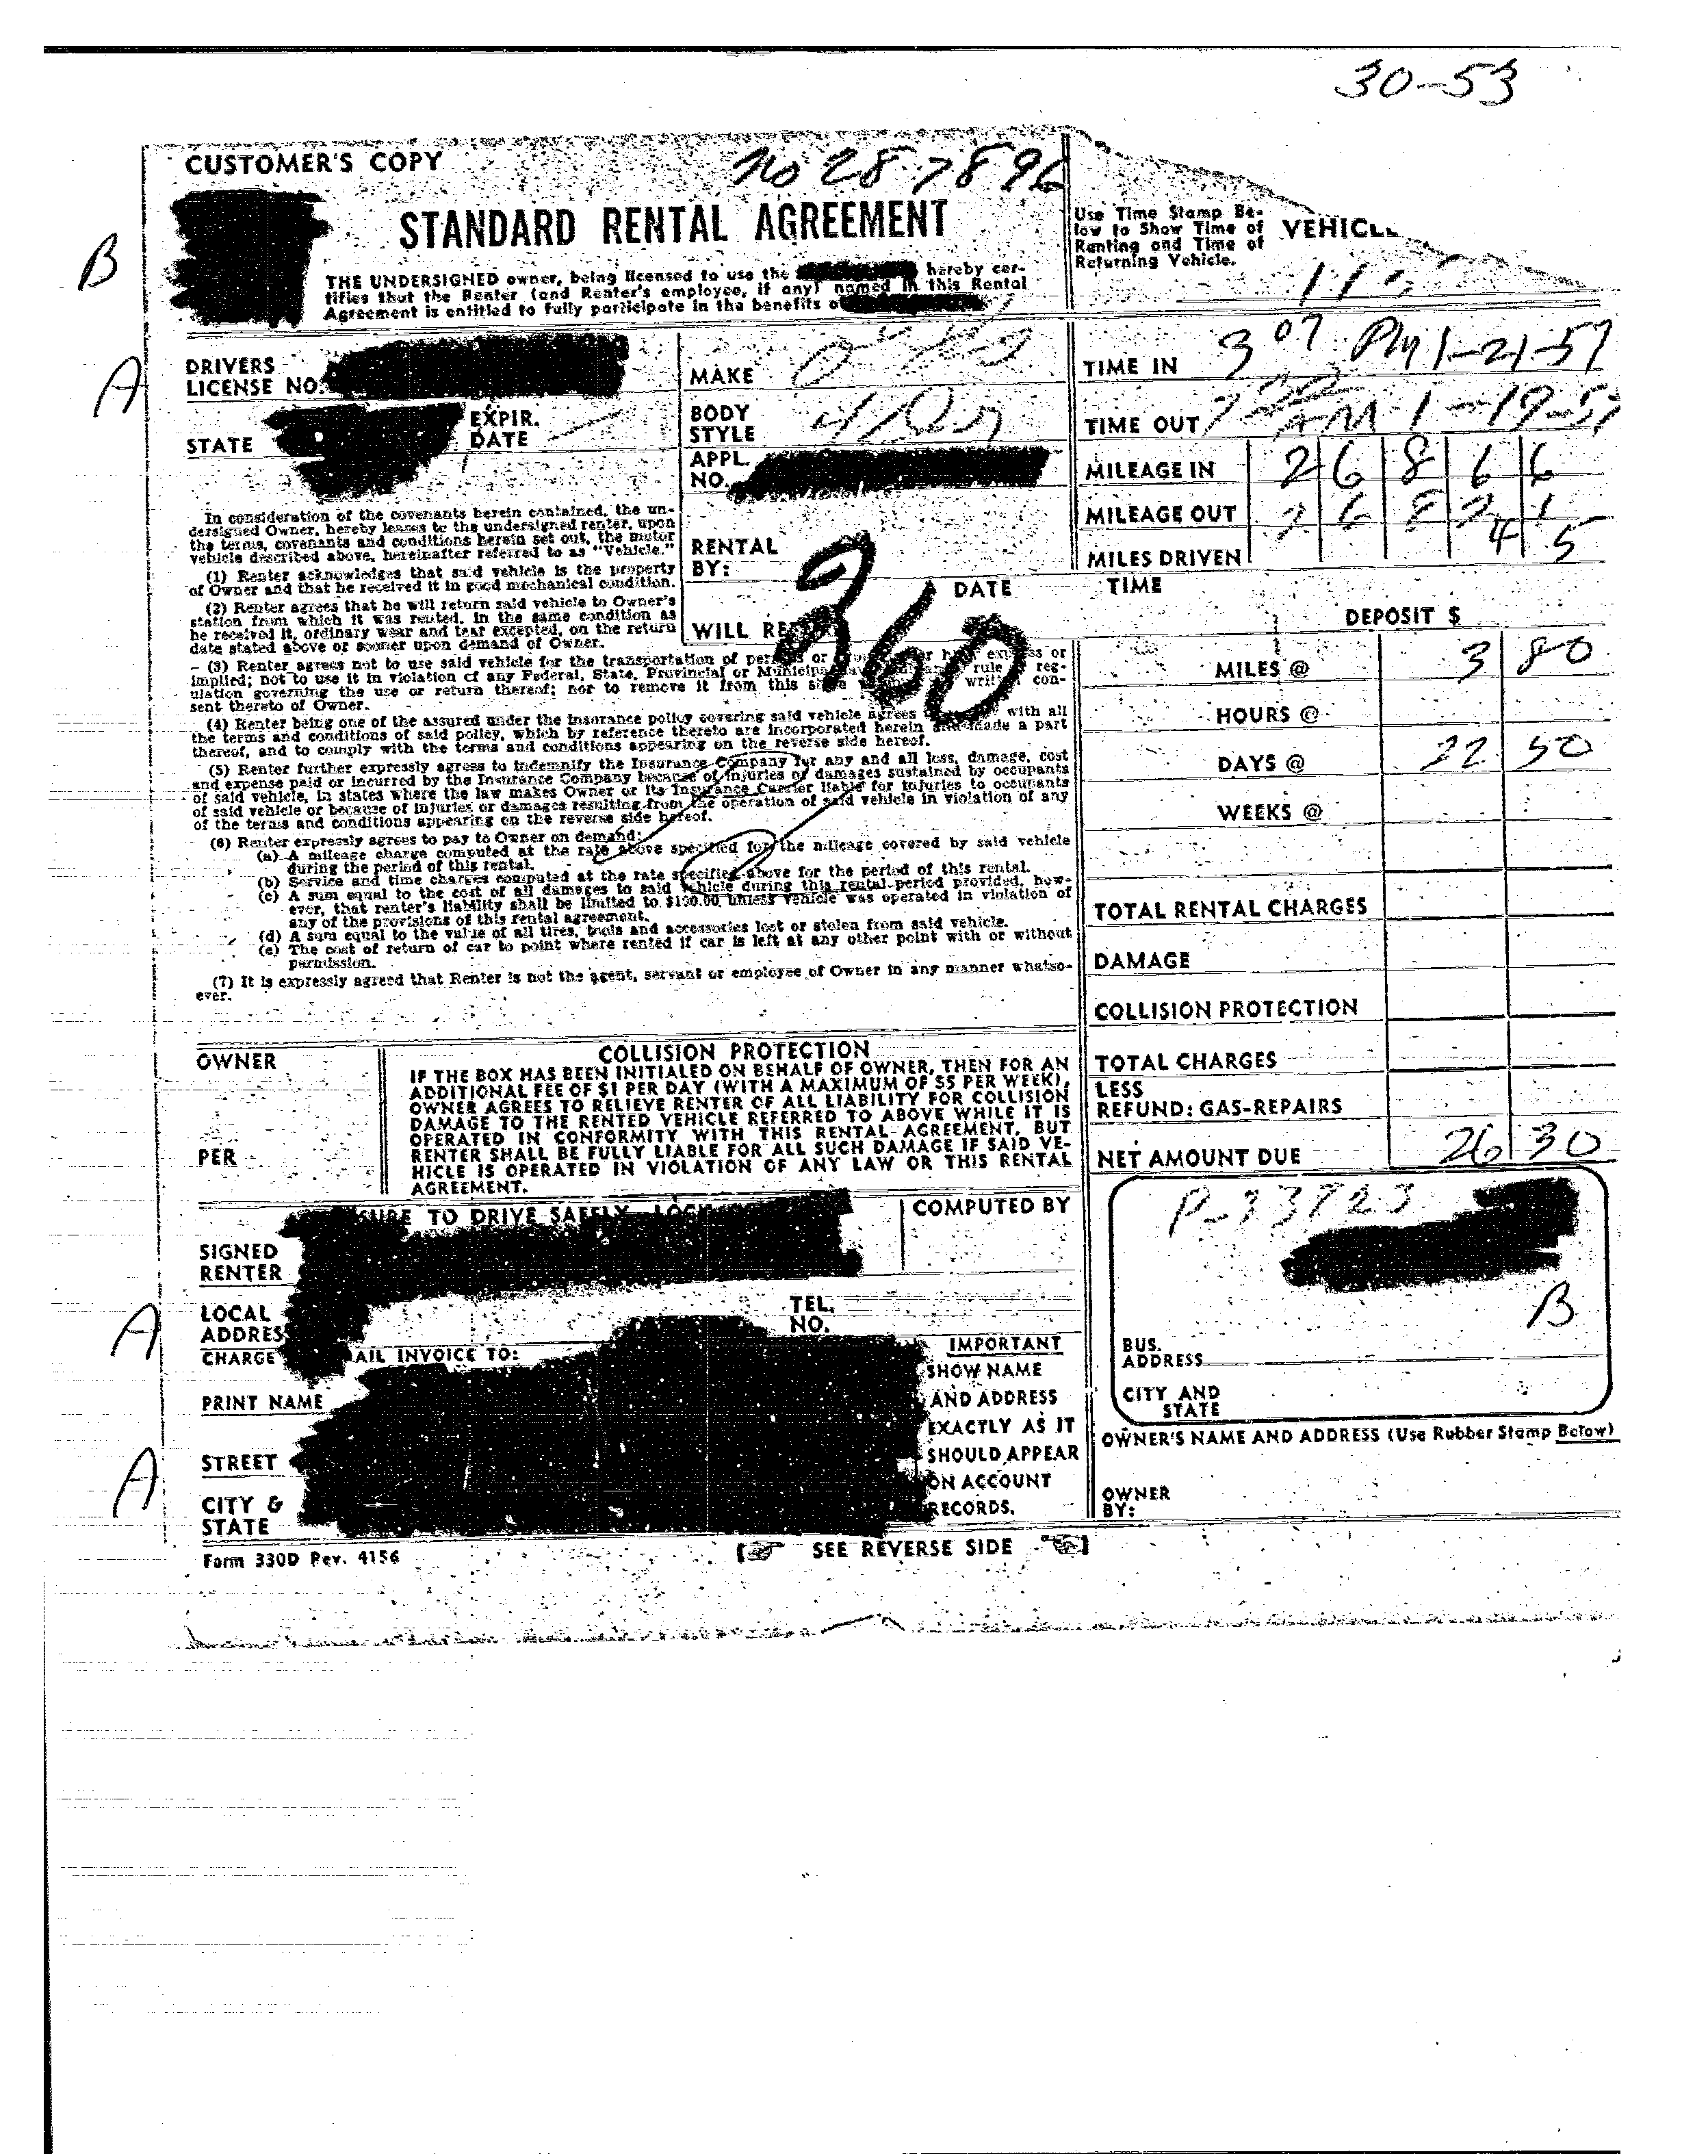 30-53
CUSTOMER'S COPY
No 287896
STANDARD RENTAL AGREEMENT
THE UNDERSIGNED owner, being licensed to use the hereby cer-
tifies that the Renter (and Renter's employee, if any) named in this Rental
Agreement is entitled to fully participate in the benefits o
Use Time Stamp Be-
low to Show Time of
Renting and Time of
Returning Vehicle.
VEHICL
B
A
DRIVERS
LICENSE NO.
STATE
EXPIR.
DATE
MAKE
BODY
STYLE
APPL.
NO.
TIME IN 3 07 PM 1-21-57
TIME OUT AM 1-19-57
MILEAGE IN 2 6 8 6 6
MILEAGE OUT 2 6 8 2 1
MILES DRIVEN 4 5
In consideration of the covenants herein contained, the un-
dersigned Owner, hereby leases to the undersigned renter, upon
the terms, covenants and conditions herein set out, the motor
vehicle described above, hereinafter referred to as "Vehicle."
(1) Renter acknowledges that said vehicle is the property
of Owner and that he received it in good mechanical condition.
(2) Renter agrees that he will return said vehicle to Owner's
station from which it was rented, in the same condition as
he received it, ordinary wear and tear excepted, on the return
date stated above or sooner upon demand of Owner.
RENTAL
BY:
DATE TIME
WILL RE
360
(3) Renter agrees not to use said vehicle for the transportation of or or
implied; not to use it in violation of any Federal, State, Provincial or rule reg-
ulation governing the use or return thereof; nor to remove it from this con-
sent thereto of Owner.
(4) Renter being one of the assured under the insurance policy covering said vehicle agrees with all
the terms and conditions of said policy, which by reference thereto are incorporated herein and made a part
thereof, and to comply with the terms and conditions appearing on the reverse side hereof.
(5) Renter further expressly agrees to indemnify the Insurance Company for any and all loss, damage, cost
and expense paid or incurred by the Insurance Company because of injuries or damages sustained by occupants
of said vehicle, in states where the law makes Owner or its Insurance Carrier liable for injuries to occupants
of said vehicle or because of injuries or damages resulting from the operation of said vehicle in violation of any
of the terms and conditions appearing on the reverse side hereof.
(6) Renter expressly agrees to pay to Owner on demand:
(a) A mileage charge computed at the rate above specified for the mileage covered by said vehicle
during the period of this rental.
(b) Service and time charges computed at the rate specified above for the period of this rental.
(c) A sum equal to the cost of all damages to said vehicle during this rental period provided, how-
ever, that renter's liability shall be limited to $100.00 unless vehicle was operated in violation of
any of the provisions of this rental agreement.
(d) A sum equal to the value of all tires, tools and accessories lost or stolen from said vehicle.
(e) The cost of return of car to point where rented if car is left at any other point with or without
permission.
(7) It is expressly agreed that Renter is not the agent, servant or employee of Owner in any manner whatso-
ever.
DEPOSIT $
MILES @ 3 80
HOURS @
DAYS @ 22 50
WEEKS @
TOTAL RENTAL CHARGES
DAMAGE
COLLISION PROTECTION
TOTAL CHARGES
LESS
REFUND: GAS-REPAIRS
NET AMOUNT DUE 26 30
OWNER
PER
COLLISION PROTECTION
IF THE BOX HAS BEEN INITIALED ON BEHALF OF OWNER, THEN FOR AN
ADDITIONAL FEE OF $1 PER DAY (WITH A MAXIMUM OF $5 PER WEEK),
OWNER AGREES TO RELIEVE RENTER OF ALL LIABILITY FOR COLLISION
DAMAGE TO THE RENTED VEHICLE REFERRED TO ABOVE WHILE IT IS
OPERATED IN CONFORMITY WITH THIS RENTAL AGREEMENT, BUT
RENTER SHALL BE FULLY LIABLE FOR ALL SUCH DAMAGE IF SAID VE-
HICLE IS OPERATED IN VIOLATION OF ANY LAW OR THIS RENTAL
AGREEMENT.
SURE TO DRIVE SAFELY
COMPUTED BY
SIGNED
RENTER
A
LOCAL
ADDRES
TEL.
NO.
CHARGE AIL INVOICE TO:
PRINT NAME
STREET
A
CITY &
STATE
IMPORTANT
SHOW NAME
AND ADDRESS
EXACTLY AS IT
SHOULD APPEAR
ON ACCOUNT
RECORDS.
B
BUS.
ADDRESS
CITY AND
STATE
OWNER'S NAME AND ADDRESS (Use Rubber Stamp Below)
OWNER
BY:
Form 330D Rev. 4156
SEE REVERSE SIDE